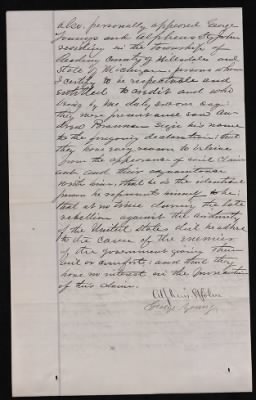 also personally appeared George
Youngs and Alpheus St John
residing in the Township of
Reading County of Hillsdale and
State of Michigan persons whom
I certify to be respectable and
entitled to credit and who
being by me duly sworn say:
they were present and saw
Braman sign his name
to the foregoing declaration; that
they have every reason to believe
from the appearance of said claim
ant and their acquaintance
with him, that he is the identical
person he represents himself to be;
that at no time during the late
rebellion against the authority
of the United States did he adhere
to the cause of the enemies
of the government giving them
aid or comfort; and that they
have no interest in the prosecution
of this claim.
Alpheus St John
George Youngs